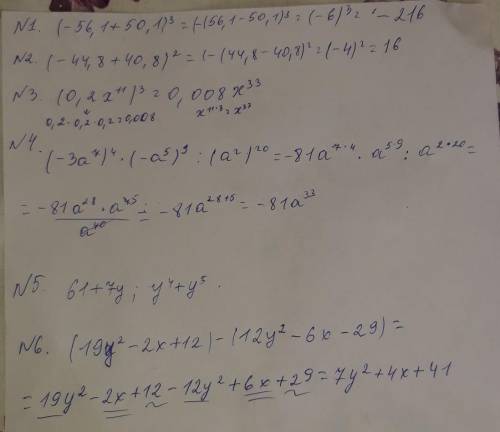 №1. (-56,1+50,1)³ = (-(56,1-50,1)³ = (-6)³ = -216
№2. (-44,8+40,8)² = (-(44,8-40,8)² = (-4)² = 16
№3. (0,2x¹¹)³ = 0,008x³³
0,2·0,2·0,2=0,008 x¹¹·³=x³³
№4.
(-3a⁷)⁴ · (-a⁵)⁹ : (a²)²⁰ = -81a⁷·⁴ · a⁵·⁹ : a²·²⁰ =
= -81a²⁸ · a⁴⁵ / a⁴⁰ = -81a²⁸⁺⁵ = -81a³³
№5. 61+7y ; y⁴+y⁵.
№6. (19y²-2x+12)-(12y²-6x-29)=
= 19y²-2x+12-12y²+6x+29=7y²+4x+41